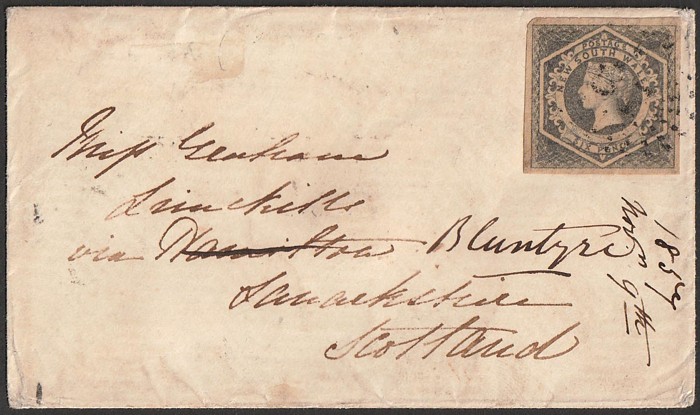 POSTAGE
NEW SOUTH WALES
SIX PENCE
Miss Graham
Limekills
via Hamilton Blantyre
Lanarkshire
Scotland
1857
9th